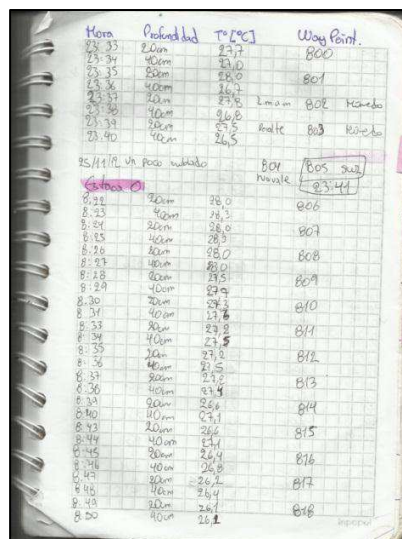 Hora Profundidad T° [°C] Way Point.
23:33 20cm 27,7 800
23:34 40cm 27,0
23:35 20cm 28,0 801
23:36 40cm 26,7
23:37 20cm 27,8 802 Húmedo
23:38 40cm 26,8
23:39 20cm 27,5 803 Húmedo
23:40 40cm 26,5
25/11/12 un poco nublado 804 805 sur
novale 23:41
Estaca 0
8:22 20cm 28,0 806
8:23 40cm 28,3
8:24 20cm 28,0 807
8:25 40cm 28,3
8:26 20cm 28,0 808
8:27 40cm 28,0
8:28 20cm 27,5 809
8:29 40cm
8:30 20cm 27,3 810
8:31 40cm 27,6
8:33 20cm 27,2 811
8:34 40cm 27,5
8:35 20cm 27,2 812
8:36 40cm 27,5
8:37 20cm 27,2 813
8:38 40cm 27,4
8:39 20cm 26,6 814
8:40 40cm 27,1
8:43 20cm 26,6 815
8:44 40cm 27,1
8:45 20cm 26,4 816
8:46 40cm 26,8
8:47 20cm 26,2 817
8:48 40cm 26,4
8:49 20cm 26,1 818
8:50 40cm 26,2